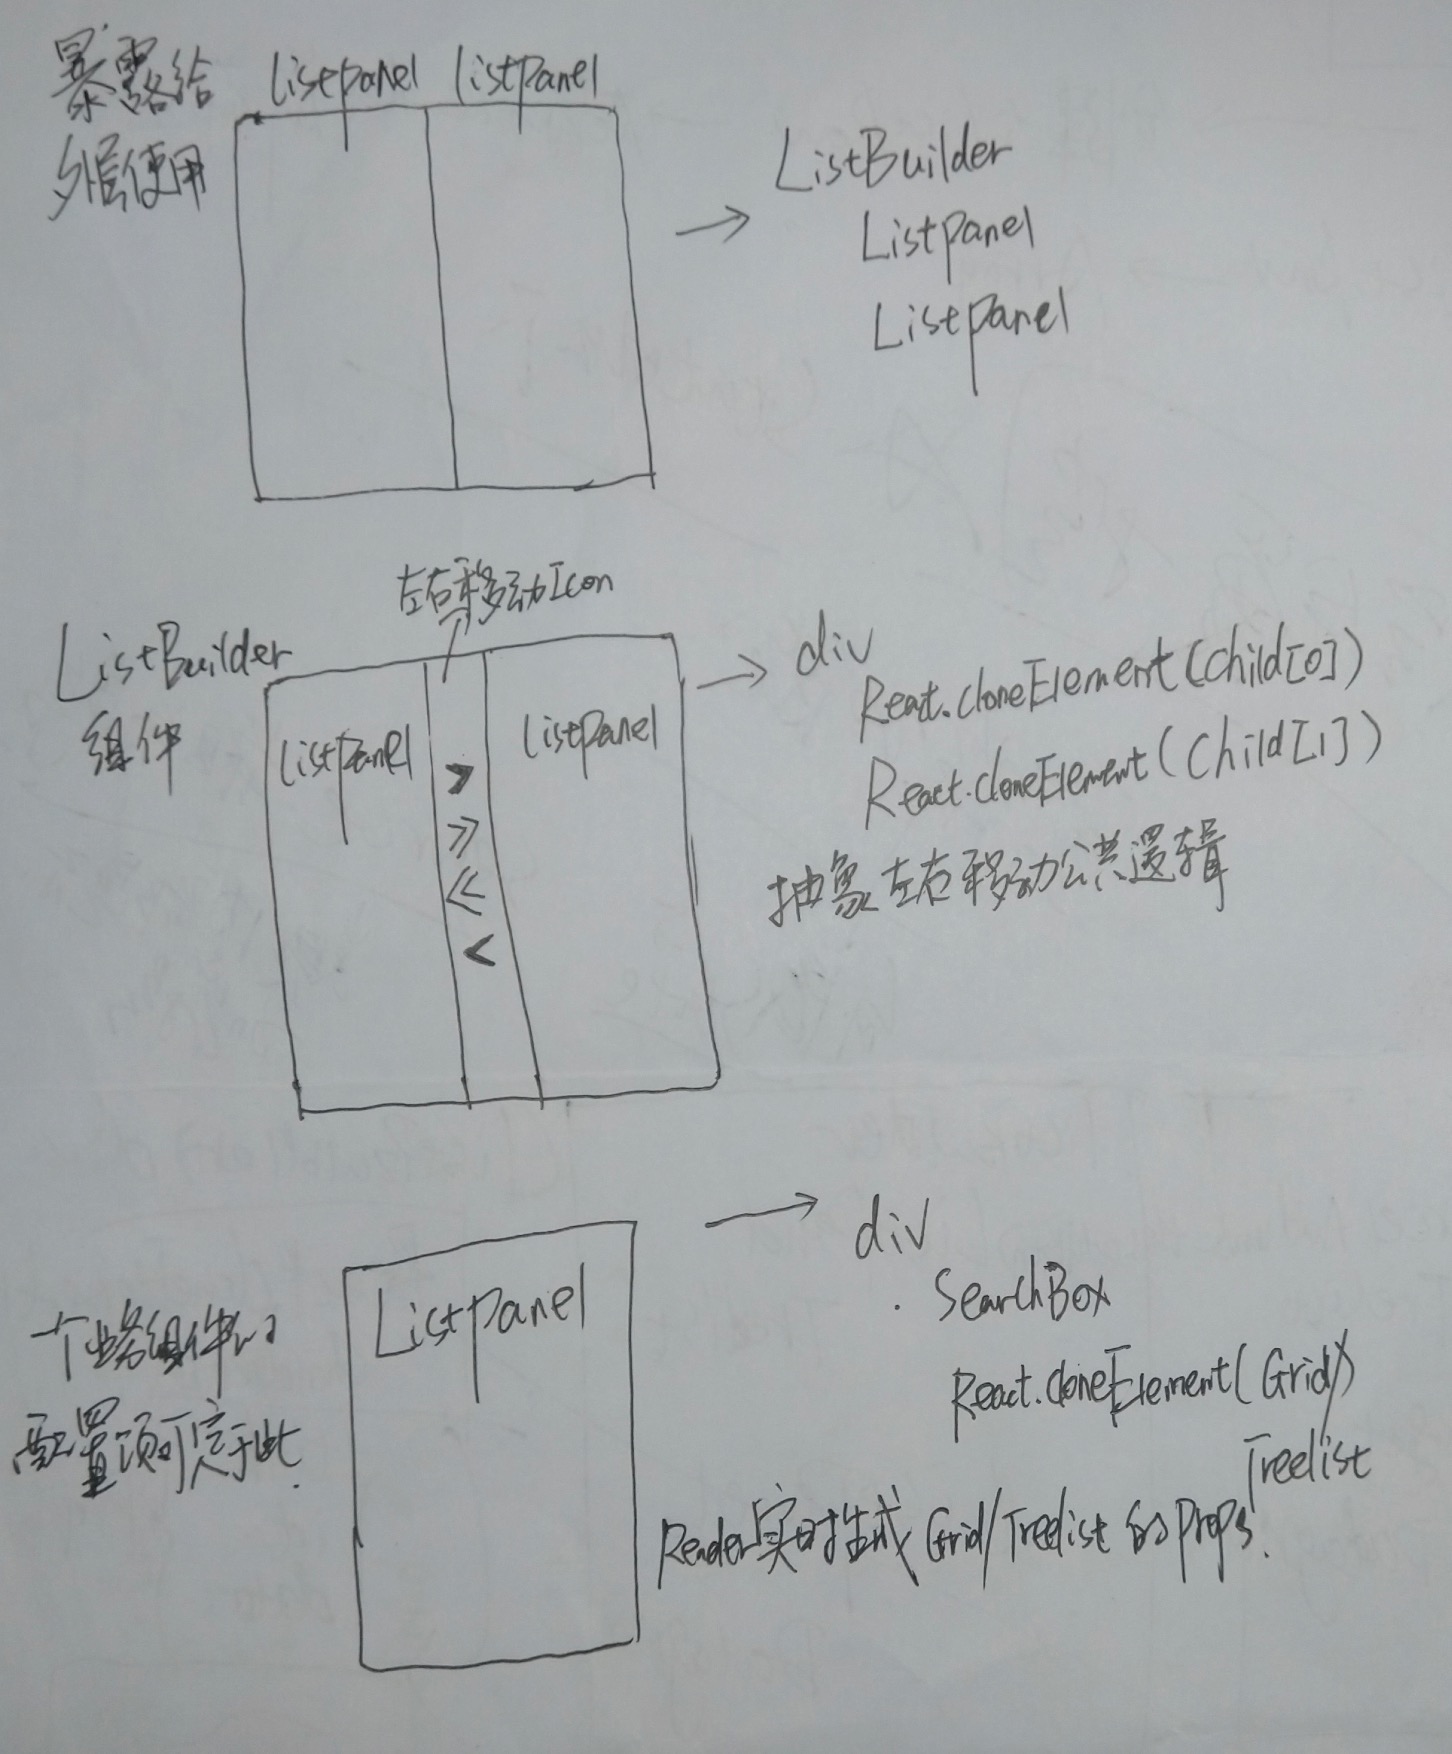 暴露给
外层使用
Listpanel ListPanel
ListBuilder
Listpanel
Listpanel
左右移动Icon
ListBuilder
组件
ListPanel
ListPanel
>
>>
<<
<
div
React.cloneElement(Child[0])
React.cloneElement(Child[1])
抽象左右移动公共逻辑
个业务组件的
配置项可定于此.
ListPanel
div
SearchBox
React.cloneElement(Grid)
Treelist
Render实时生成 Grid/Treelist 的props.